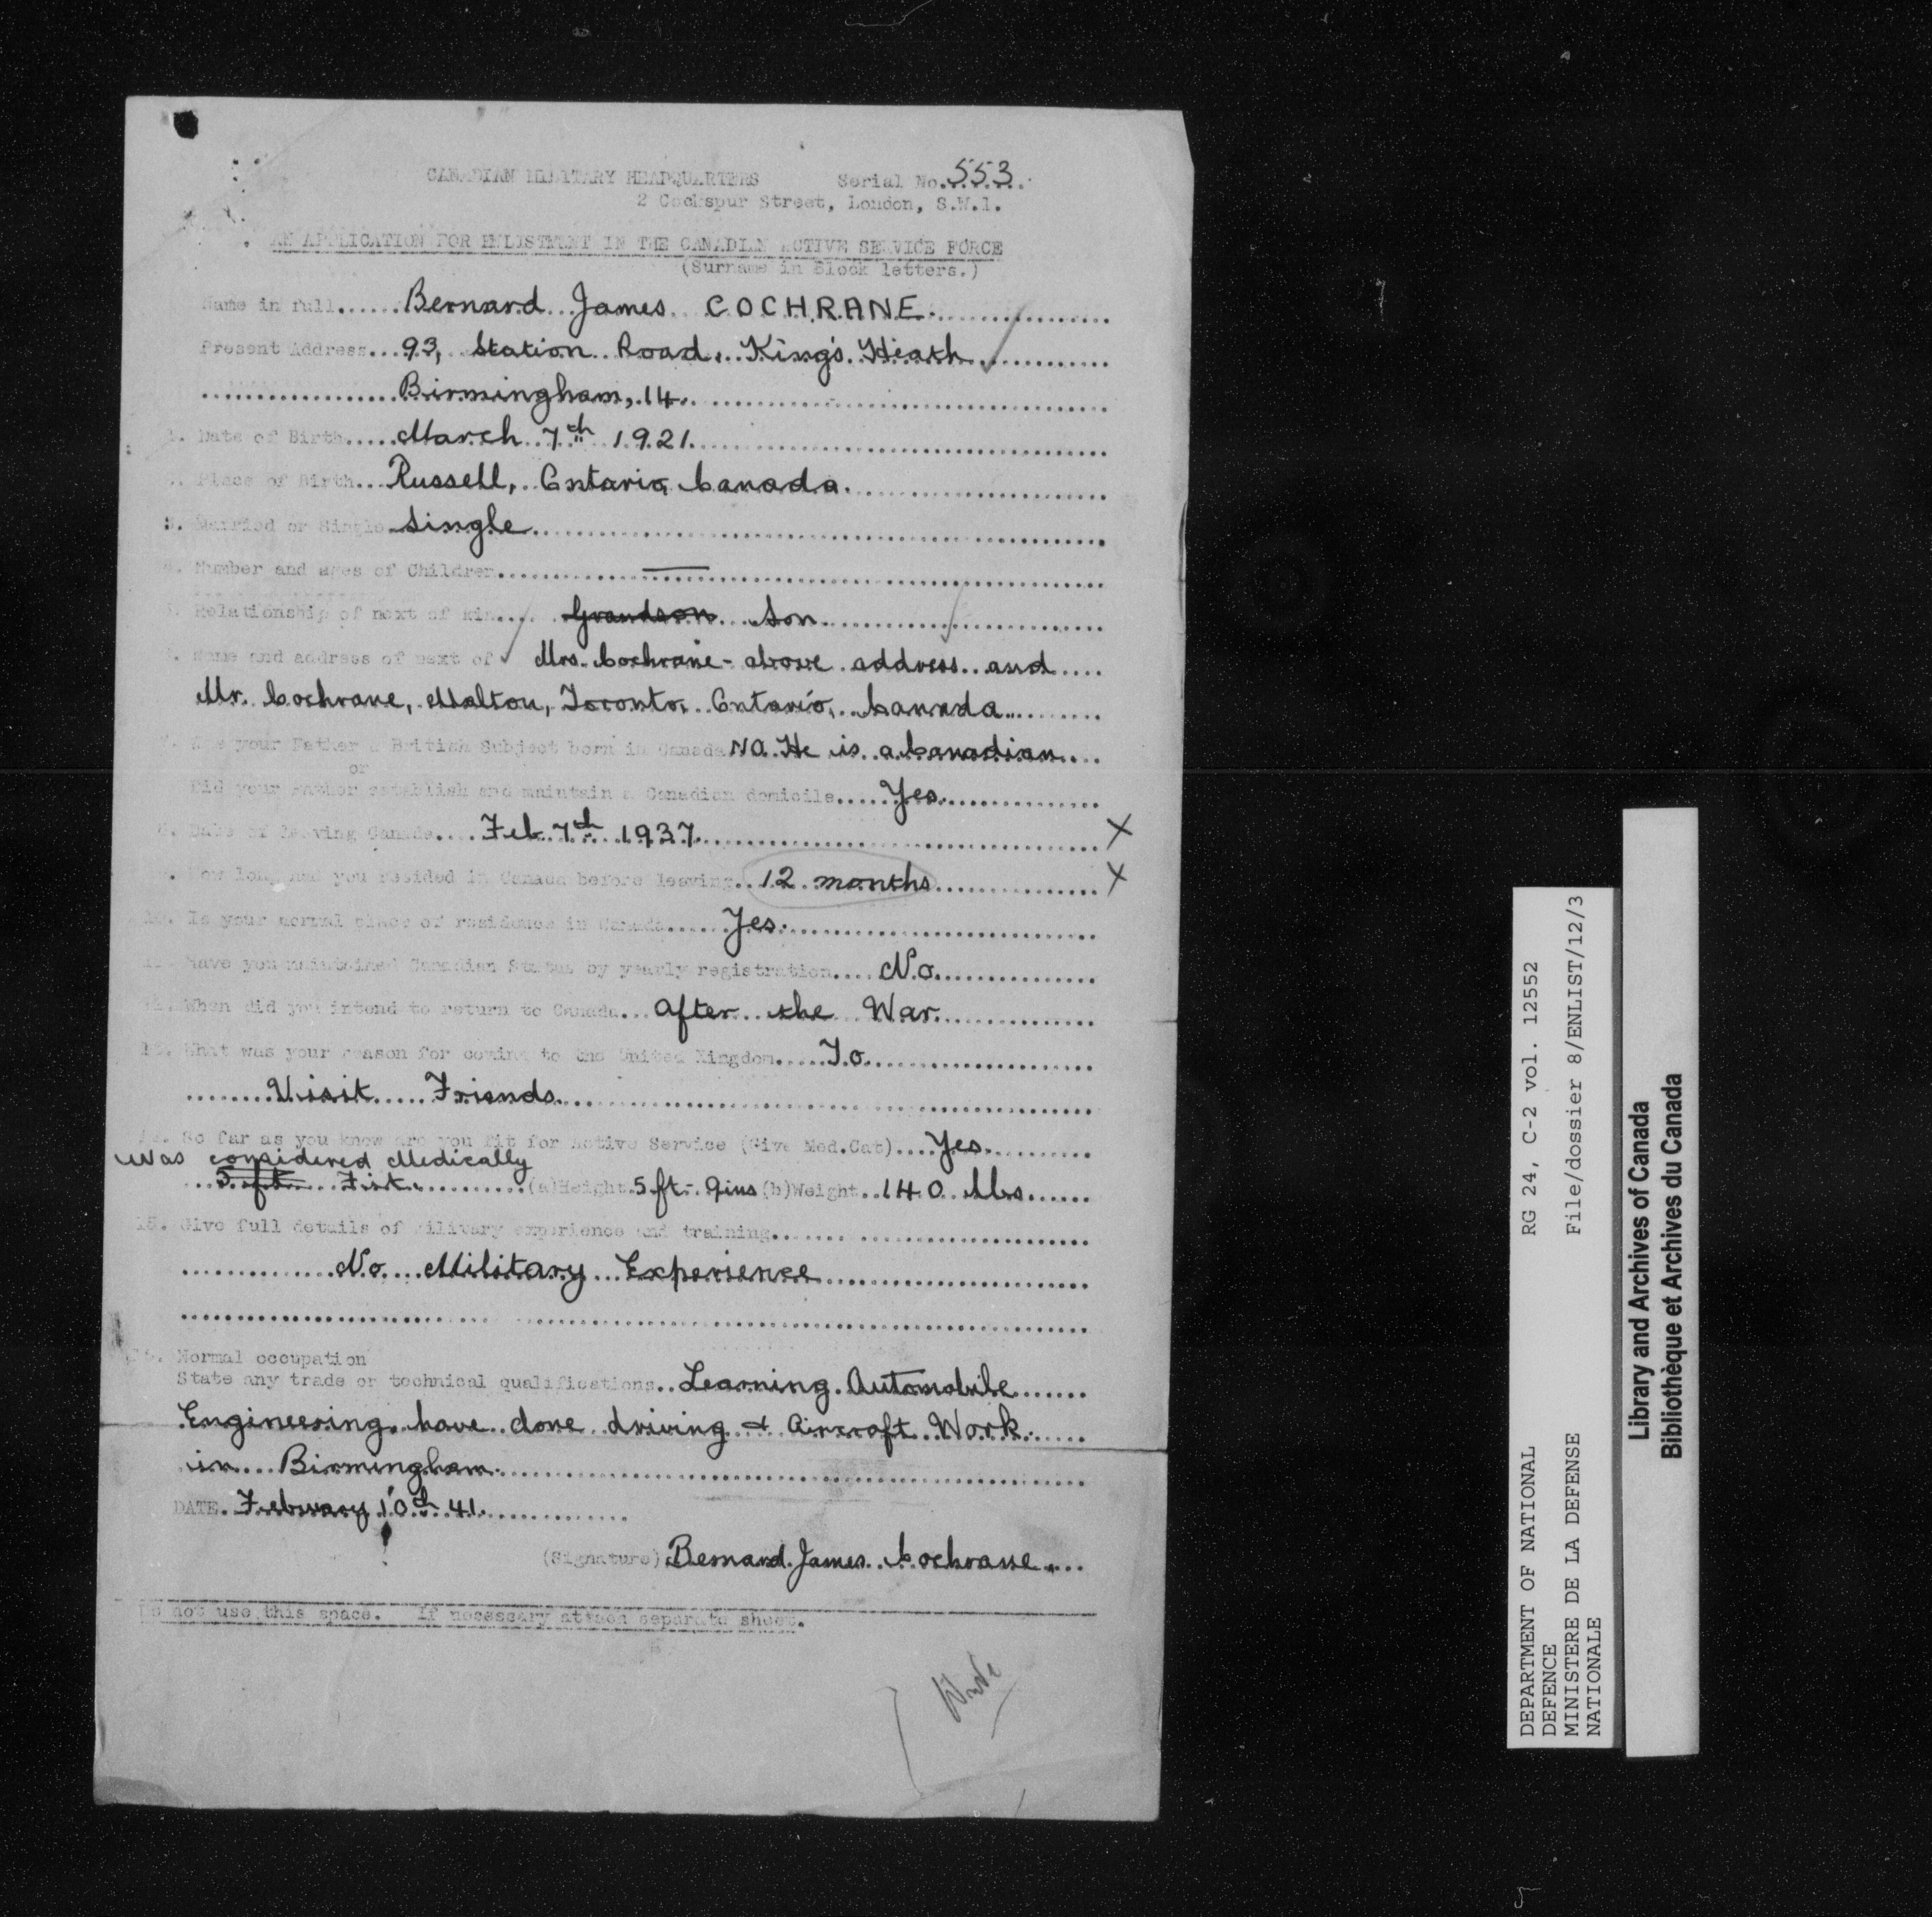 CANADIAN MILITARY HEADQUARTERS Serial No. 553
2 Cockspur Street, London, S.W.1.
AN APPLICATION FOR ENLISTMENT IN THE CANADIAN ACTIVE SERVICE FORCE
(Surname in Block letters.)
Name in full......Bernard James COCHRANE.
Present Address...93, Station Road, King's Heath
Birmingham, 14.
Date of Birth.....March 7th 1921.
Place of Birth...Russell, Ontario, Canada.
3. Married or Single Single
4. Number and ages of Children..... —
5. Relationship of next of kin.... Grandson Son
Name and address of next of Mrs. Cochrane - above address and
Mr. Cochrane, Malton, Toronto, Ontario, Canada.
your Father a British Subject born in Canada NO. He is a Canadian
or
Did your Father establish and maintain a Canadian domicile.....Yes.
Date of leaving Canada....Feb 7th 1937. X
How long had you resided in Canada before leaving..12 months X
10. Is your normal place of residence in Canada......Yes.
11. Have you maintained Canadian Status by yearly registration....No.
12. When did you intend to return to Canada...After the War.
13. What was your reason for coming to the United Kingdom.....To
Visit Friends.
14. So far as you know are you fit for Active Service (Give Med.Cat)....Yes.
Was considered Medically
5 ft Fit. (a)Height 5 ft - 9 ins (b)Weight..140 lbs
15. Give full details of military experience and training
No Military Experience
16. Normal occupation
State any trade or technical qualifications..Learning Automobile
Engineering, have done driving & Aircraft Work
in Birmingham.
DATE. February 10th 41.
(Signature) Bernard James Cochrane.
Do not use this space. If necessary attach separate sheet.
DEPARTMENT OF NATIONAL RG 24, C-2 vol. 12552
DEFENCE
MINISTERE DE LA DEFENSE File/dossier 8/ENLIST/12/3
NATIONALE
Library and Archives of Canada
Bibliothèque et Archives du Canada